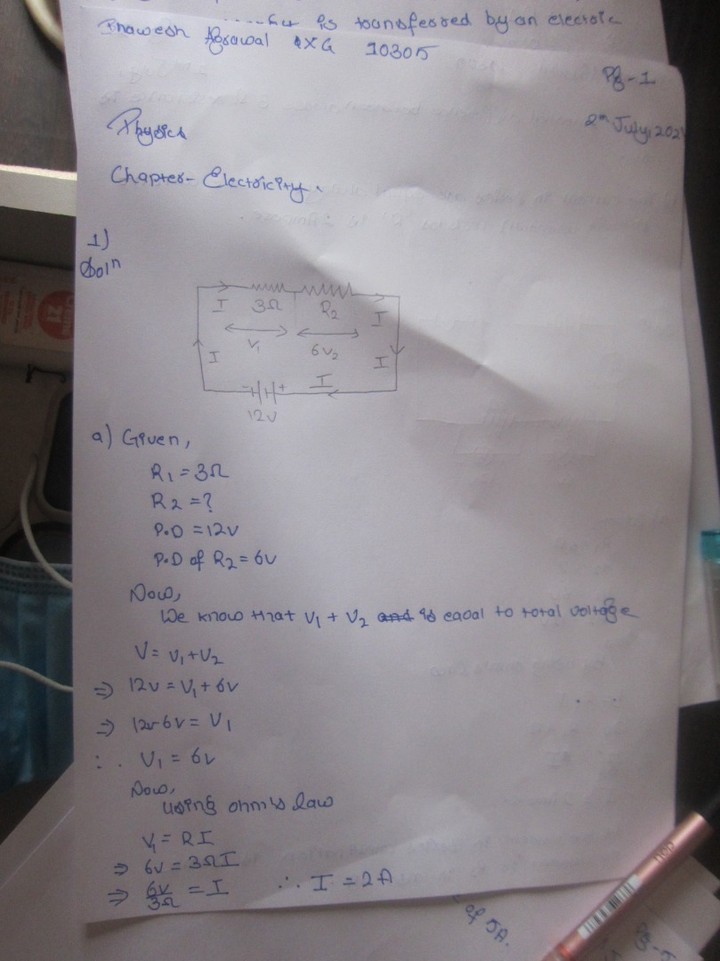 is transferred by an electric
Prawesh Agrawal XG 10305
Pg-1
2nd July, 202
Physics
Chapter- Electricity.
1)
Soln
I 3Ω R2 I
V1 6V2
I I
I
- +
12V
a) Given,
R1 = 3Ω
R2 = ?
P.D = 12V
P.D of R2 = 6V
Now,
We know that V1 + V2 and is eaual to total voltage
V = V1 + V2
⇒ 12V = V1 + 6V
⇒ 12v-6V = V1
∴ V1 = 6V
Now,
using ohm's law
V1 = RI
⇒ 6V = 3ΩI
⇒ 6V/3Ω = I ∴ I = 2A
of 5A.